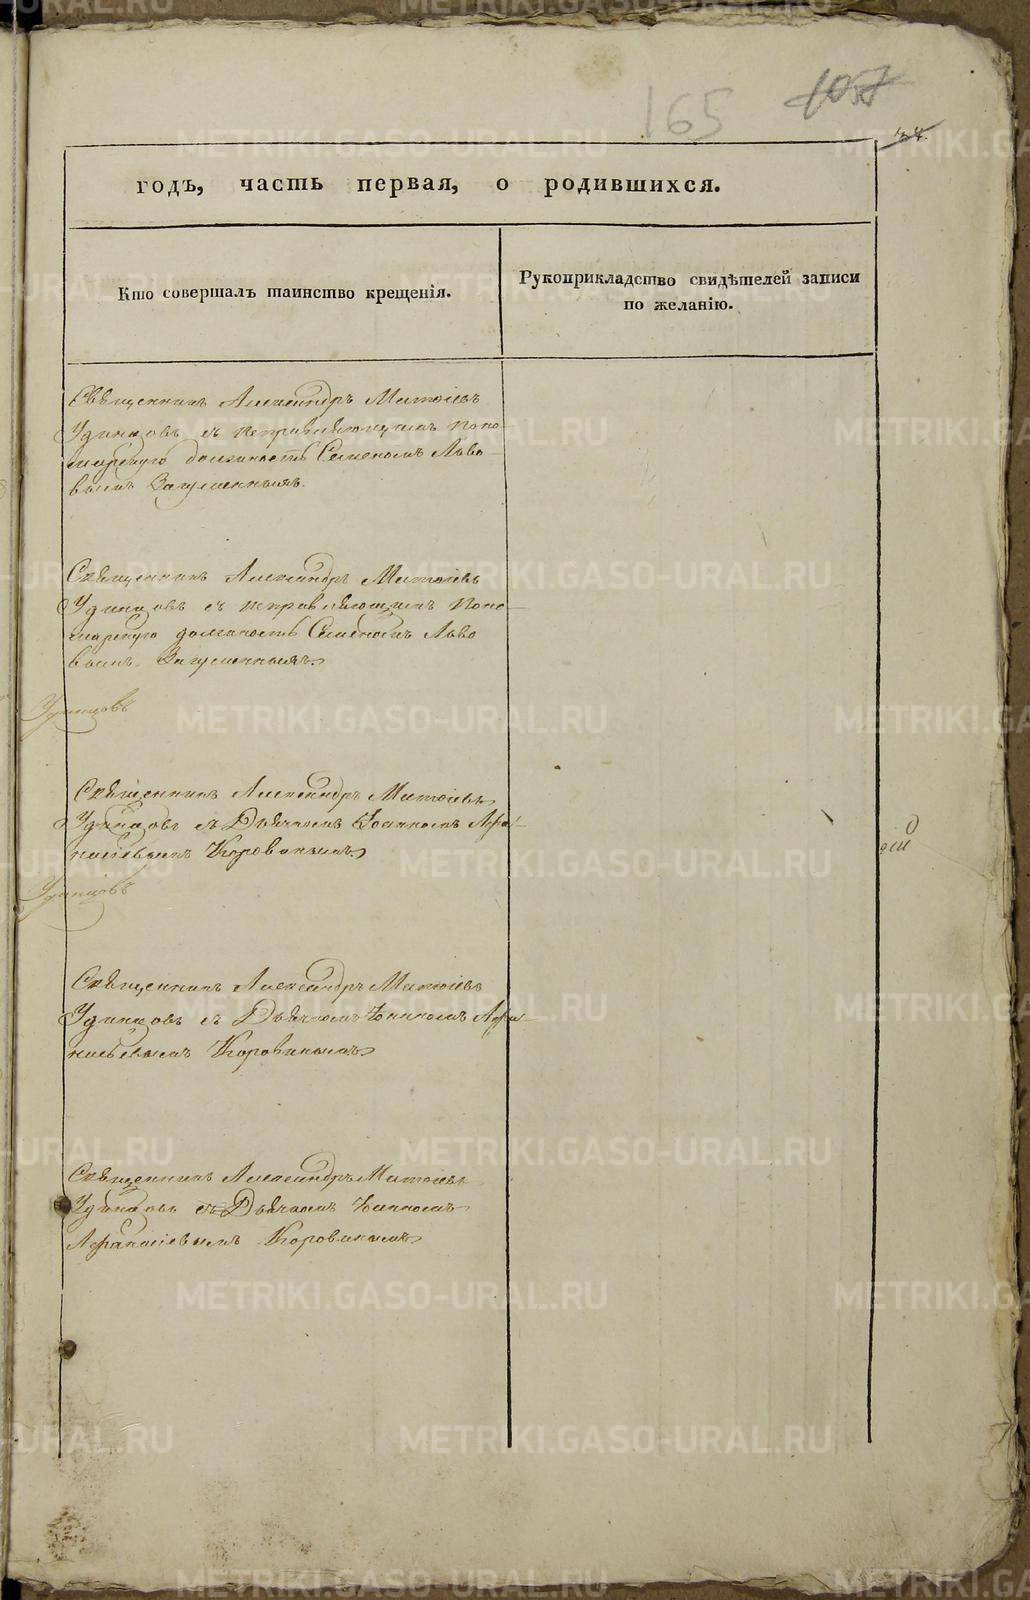 165
1057
годъ, часть первая, о родившихся.
Кто совершалъ таинство крещенія.
Рукоприкладство свидѣтелей записи
по желанію.
Священникъ Александръ Матѳіевъ
Удинцовъ съ исправляющимъ поно-
марскую должность Семеномъ Льво-
вымъ Загуменныхъ.
Священникъ Александръ Матѳіевъ
Удинцовъ съ исправляющимъ поно-
марскую должность Семеномъ Льво
вымъ Загуменныхъ.
Удинцовъ
Священникъ Александръ Матѳіевъ
Удинцовъ съ Дьячкомъ Іоанномъ Афа-
насіевымъ Коровинымъ.
Удинцовъ
Священникъ Александръ Матѳіевъ
Удинцовъ съ Дьячкомъ Іоанномъ Афа-
насьевымъ Коровинымъ
Священникъ Александръ Матѳіевъ
Удинцовъ съ Дьячкомъ Іоанномъ
Афанасіевымъ Коровинымъ
METRIKI.GASO-URAL.RU